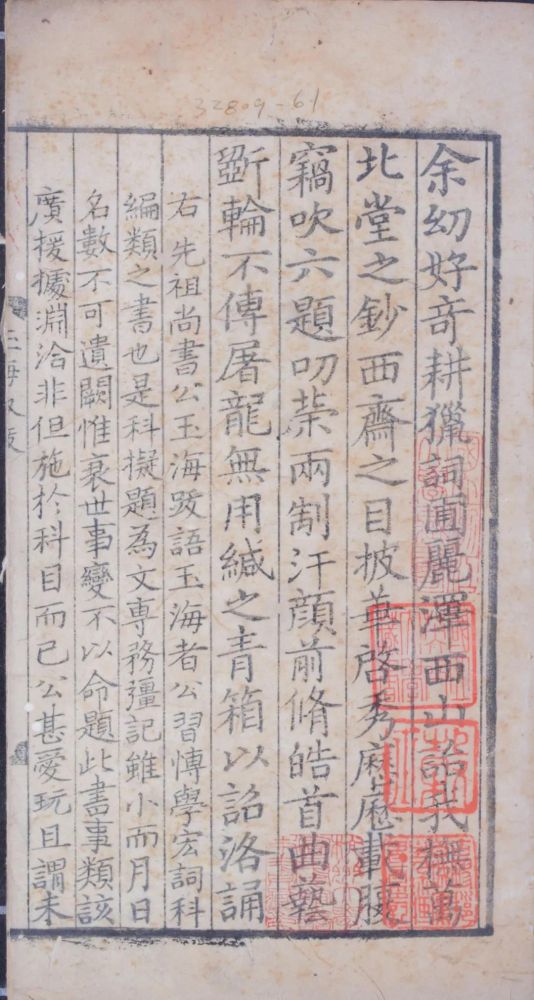 32809-61
余幼好竒耕獵詞圃麗澤西山詒我楙萬
北堂之鈔西齋之目披華啓秀麽㞕載腹
竊吹六題叨榮兩制汗顔前脩皓首曲藝
斵輪不傳屠龍無用緘之青箱以詔洛誦
右先祖尚書公玉海跋語玉海者公習愽學宏詞科
編類之書也是科擬題為文專務彊記雖小而月日
名數不可遺闕惟衰世事變不以命題此書事類該
廣援㩀淵洽非但施於科目而已公甚愛玩且謂未
玉海